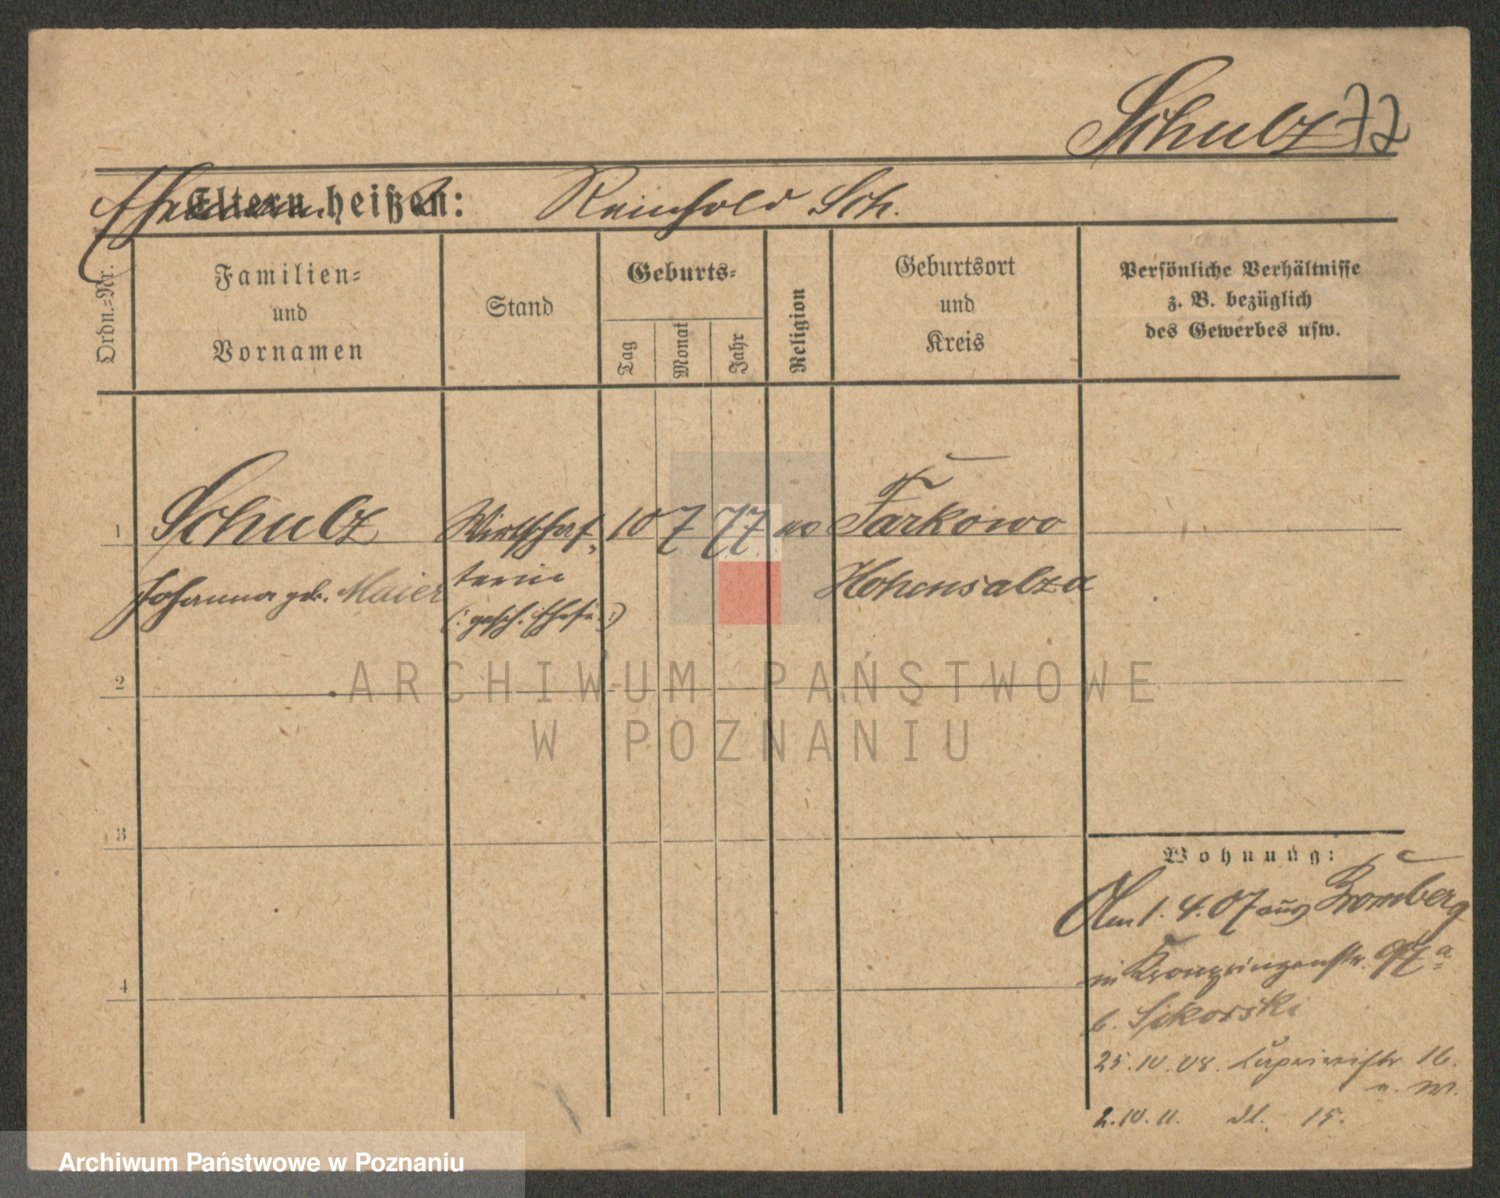 Schulz 72
Eltern heißen: Reinhold Sch.
Ehemann
Ordn.-Nr.
Familien-
und
Vornamen
Stand
Geburts-
Tag
Monat
Jahr
Religion
Geburtsort
und
Kreis
Persönliche Verhältnisse
z. B. bezüglich
des Gewerbes usw.
1 Schulz Wirtschaf- 10 7 77 Tarkowo
Johanna geb. Maier terin Hohensalza
(: gesch. Ehefr. :)
2
ARCHIWUM PAŃSTWOWE
W POZNANIU
3
4
Wohnung:
1. 4. 07 aus Bromberg
in Kronprinzenstr. 97 a
b. Sikorski
25. 10. 08. 16.
2. 10. 11. 15.
Archiwum Państwowe w Poznaniu